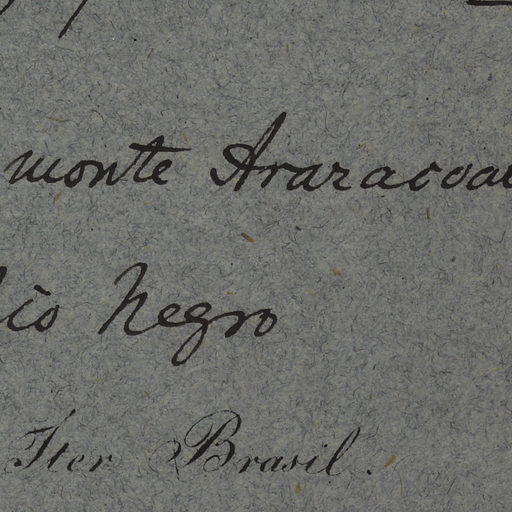 monte Araracoa
io Negro
Iter Brasil.